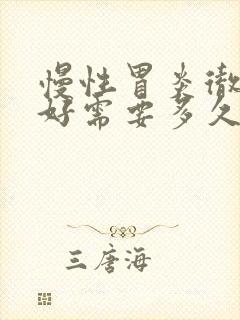 慢性胃炎徹
好需要多久
三唐海